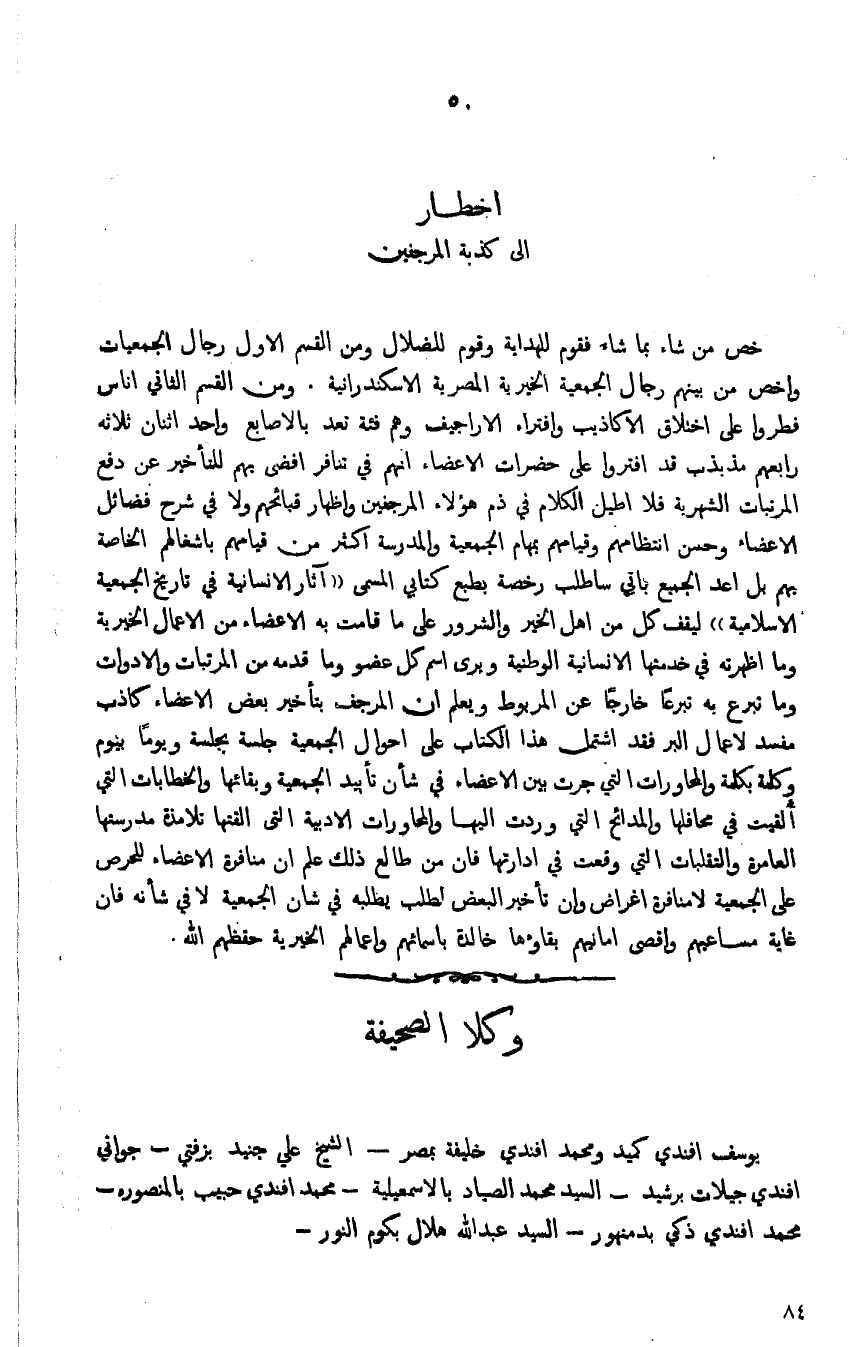 ٥٠
اخطار
الى كذبة المرجفين
خص من شاء بما شاء فقوم للهداية وقوم للضلال ومن القسم الاول رجال الجمعيات
واخص من بينهم رجال الجمعية الخيرية المصرية الاسكندرانية . ومن القسم الثاني اناس
فطروا على اختلاق الاكاذيب وافتراء الاراجيف وهم فئة تعد بالاصابع واحد اثنان ثلاثه
رابعهم مذبذب قد افتروا على حضرات الاعضاء انهم في تنافر افضى بهم للتأخير عن دفع
المرتبات الشهرية فلا اطيل الكلام في ذم هؤلاء المرجفين واظهار قبائحهم ولا في شرح فضائل
الاعضاء وحسن انتظامهم وقيامهم بمهام الجمعية والمدرسة اكثر من قيامهم باشغالهم الخاصة
بهم بل اعد الجميع باني ساطلب رخصة بطبع كتابي المسمى ((آثار الانسانية في تاريخ الجمعية
الاسلامية)) ليقف كل من اهل الخير والشرور على ما قامت به الاعضاء من الاعمال الخيرية
وما اظهرته في خدمتها الانسانية الوطنية ويرى اسم كل عضو وما قدمه من المرتبات والادوات
وما تبرع به تبرعًا خارجًا عن المربوط ويعلم ان المرجف بتأخير بعض الاعضاء كاذب
مفسد لاعمال البر فقد اشتمل هذا الكتاب على احوال الجمعية جلسة بجلسة ويومًا بيوم
وكلمة بكلمة والمحاورات التي جرت بين الاعضاء في شأن تأييد الجمعية وبقائها والخطابات التي
أُلقيت في محافلها والمدائح التي وردت اليها والمحاورات الادبية التى القتها تلامذة مدرستها
العامرة والتقلبات التي وقعت في ادارتها فان من طالع ذلك علم ان منافرة الاعضاء للحرص
على الجمعية لا منافرة اغراض وان تأخير البعض لطلب يطلبه في شان الجمعية لا في شأنه فان
غاية مساعيهم واقصى امانيهم بقاؤها خالدة باسمائهم واعمالهم الخيرية حفظهم الله .
وكلا الصحيفة
يوسف افندي كيد ومحمد افندي خليفة بمصر — الشيخ علي جنيد بزفتي — جواني
افندي جيلات برشيد — السيد محمد الصياد بالاسمعيلية — محمد افندي حبيب بالمنصوره —
محمد افندي ذكي بدمنهور — السيد عبدالله هلال بكوم النور —
٨٤